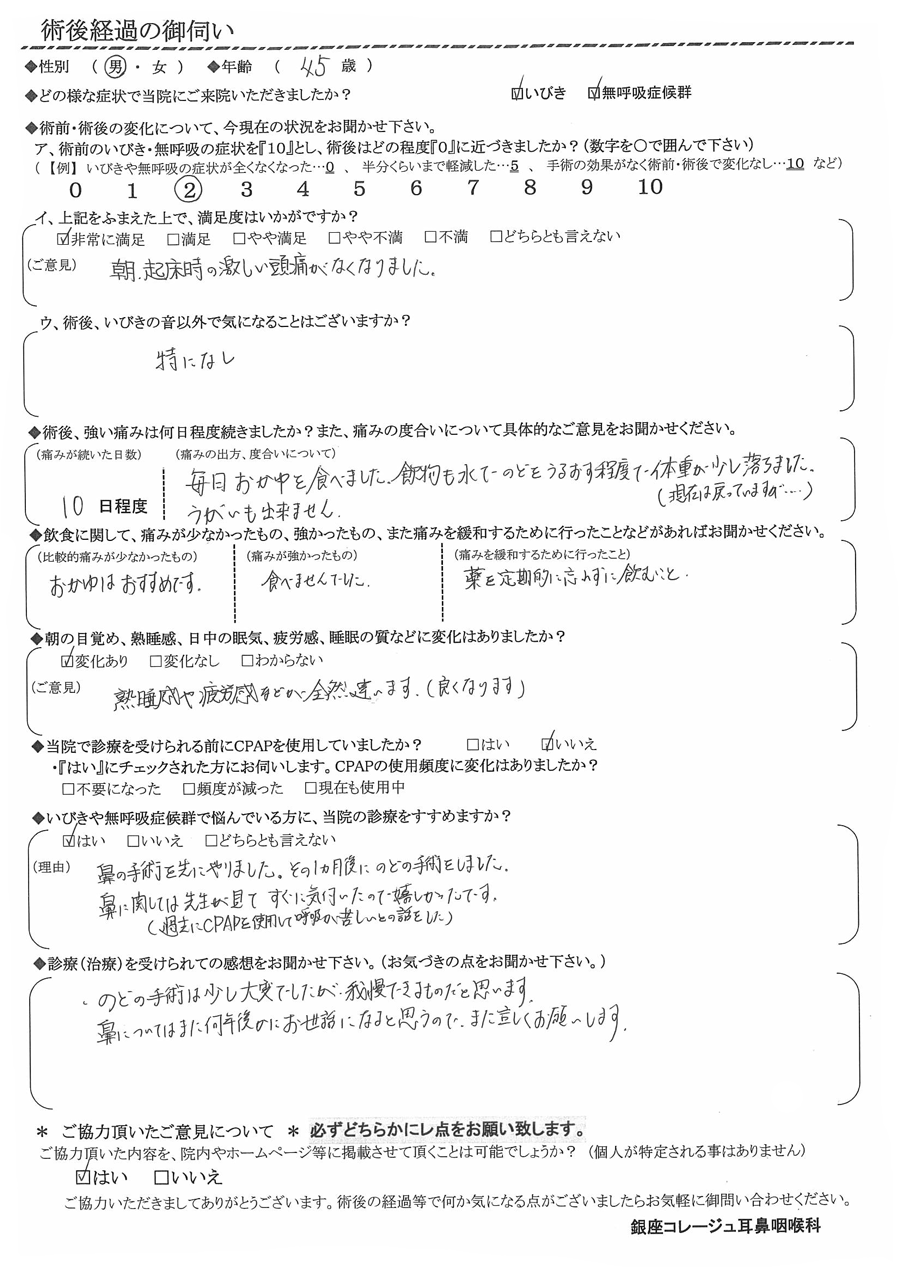 術後経過の御伺い
◆性別 (男・女) ◆年齢 (45歳)
◆どの様な症状で当院にご来院いただきましたか? ☑いびき ☑無呼吸症候群
◆術前・術後の変化について、今現在の状況をお聞かせ下さい。
ア、術前のいびき・無呼吸の症状を『10』とし、術後はどの程度『0』に近づきましたか?(数字を○で囲んで下さい)
(【例】いびきや無呼吸の症状が全くなくなった…0 、 半分くらいまで軽減した…5 、 手術の効果がなく術前・術後で変化なし…10 など)
0 1 ② 3 4 5 6 7 8 9 10
イ、上記をふまえた上で、満足度はいかがですか?
☑非常に満足 □満足 □やや満足 □やや不満 □不満 □どちらとも言えない
(ご意見) 朝、起床時の激しい頭痛がなくなりました。
ウ、術後、いびきの音以外で気になることはございますか?
特になし
◆術後、強い痛みは何日程度続きましたか?また、痛みの度合いについて具体的なご意見をお聞かせください。
(痛みが続いた日数) (痛みの出方、度合いについて)
毎日おか中を食べました。飲物も水でのどをうるおす程度で体重が少し落ちました。
(現在は戻っていますが…)
10 日程度 うがいも出来ません。
◆飲食に関して、痛みが少なかったもの、強かったもの、また痛みを緩和するために行ったことなどがあればお聞かせください。
(比較的痛みが少なかったもの) (痛みが強かったもの) (痛みを緩和するために行ったこと)
おかゆはおすすめです。 食べませんでした。 薬を定期的に忘れずに飲むこと。
◆朝の目覚め、熟睡感、日中の眠気、疲労感、睡眠の質などに変化はありましたか?
☑変化あり □変化なし □わからない
(ご意見) 熟睡感や疲労感などが全然違います。(良くなります)
◆当院で診療を受けられる前にCPAPを使用していましたか? □はい ☑いいえ
・『はい』にチェックされた方にお伺いします。CPAPの使用頻度に変化はありましたか?
□不要になった □頻度が減った □現在も使用中
◆いびきや無呼吸症候群で悩んでいる方に、当院の診療をすすめますか?
☑はい □いいえ □どちらとも言えない
(理由) 鼻の手術を先にやりました。その1カ月後にのどの手術をしました。
鼻に関しては先生が見てすぐに気付いたので嬉しかったです。
(過去にCPAPを使用して呼吸が苦しいとの話をした)
◆診療(治療)を受けられての感想をお聞かせ下さい。(お気づきの点をお聞かせ下さい。)
、のどの手術は少し大変でしたが、我慢できるものだと思います。
鼻についてはまた何年後かにお世話になると思うので、また宜しくお願いします。
* ご協力頂いたご意見について * 必ずどちらかにレ点をお願い致します。
ご協力頂いた内容を、院内やホームページ等に掲載させて頂くことは可能でしょうか?(個人が特定される事はありません)
☑はい □いいえ
ご協力いただきましてありがとうございます。術後の経過等で何か気になる点がございましたらお気軽に御問い合わせください。
銀座コレージュ耳鼻咽喉科